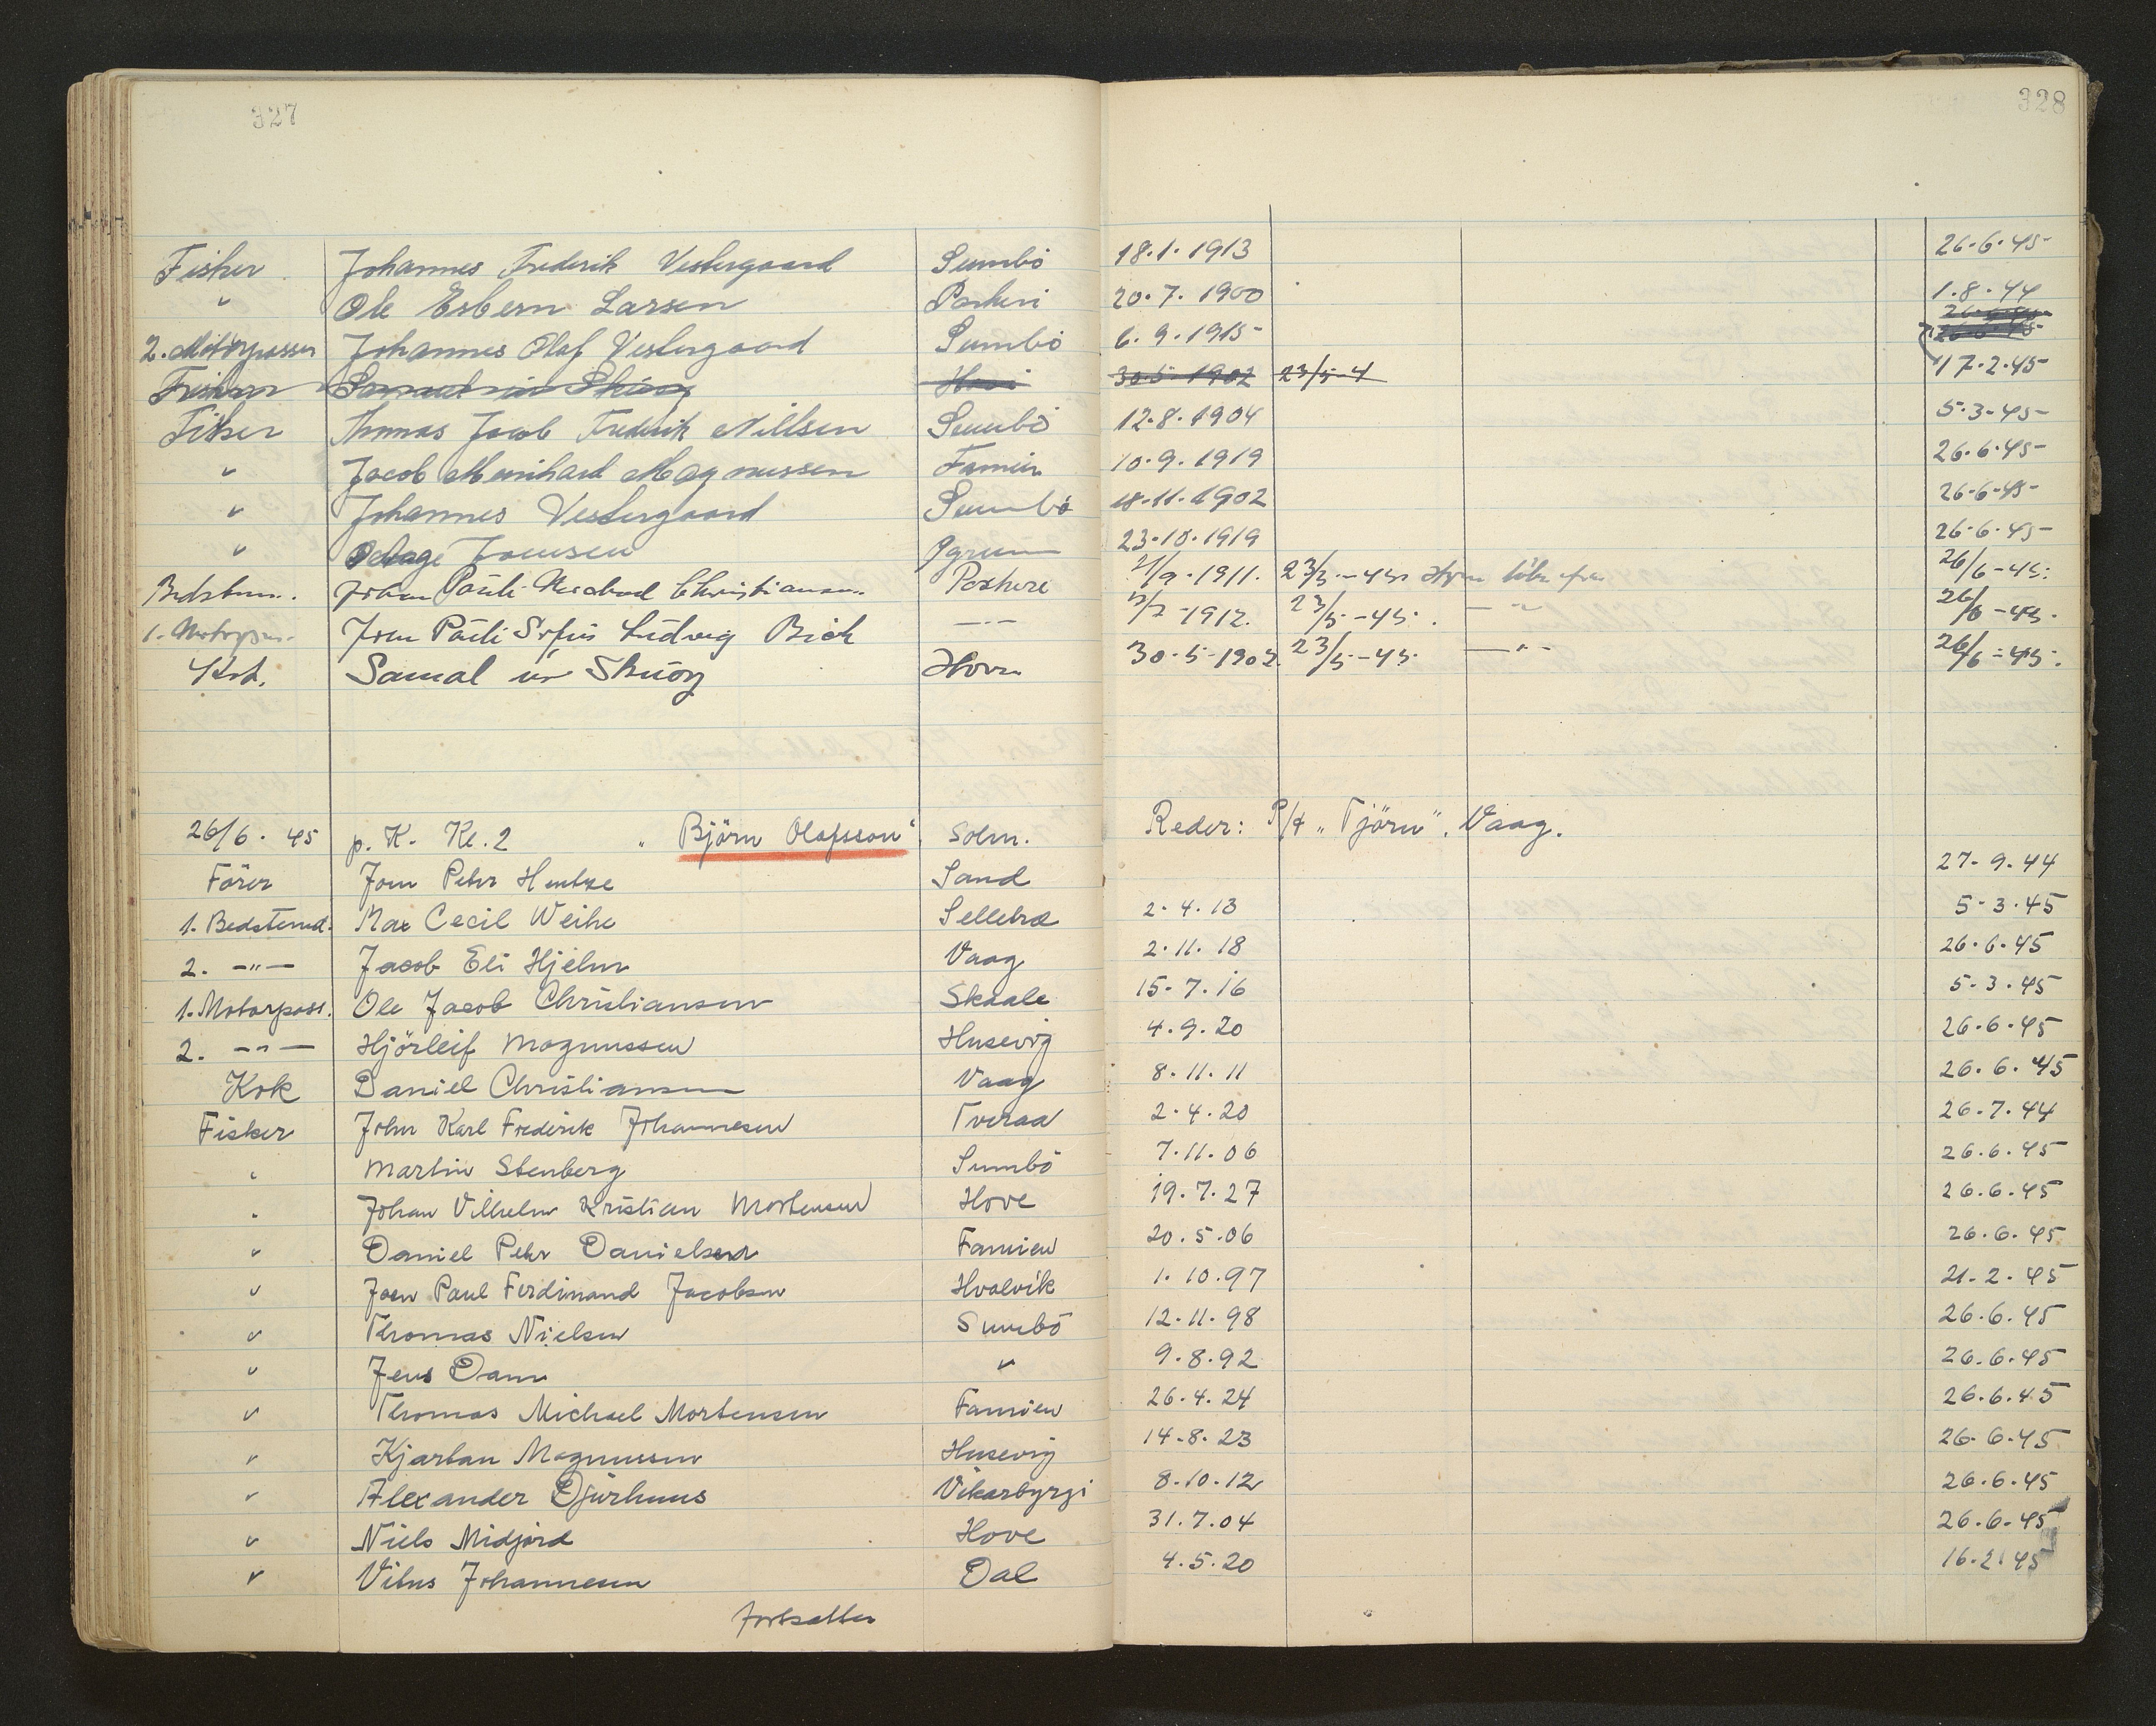 327 328
Fisker Johannes Frederik Vestergaard Sumbö 18.1.1913 26.6.45
" Ole Esbern Larsen Porkeri 20.7.1900 1.8.44
2. Motorpasser Johannes Olaf Vestergaard Sumbö 6.9.1915 17.2.45
30.5.1902 23/5-4
Fisker Thomas Jacob Frederik Nillsen Sumbö 12.8.1904 5.3-45
" Jacob Meinhard Magnussen Famien 10.9.1919 26.6.45
" Johannes Vestergaard Sumbö 18.11.1902 26-6-45
" Joensen 23.10.1919 26.6.45
Bedstem. Pauli Christiansen Porkere /9-1911. 23/5-45 26/6-45.
1. Motorpas. Joen Pauli Ludvig Bich -"- -1912. 23/5-45. -"- 26/6-45.
Kok. Samal úr Skúöy Hove 30-5-1902 23/5-45. -"- 26/6-45.
26/6.45 p. K. Kl. 2 "Björn Olafsson" Solm. Reder: P/f "Tjörn", Vaag.
Förer Joen Peter Hentze Sand 27-9.44
1. Bedstemd. Max Cecil Weihe Sellebræ 2-4.13 5-3.45
2. -"- Jacob Eli Hjelm Vaag 2.11.18 26.6.45
1. Motorpass. Ole Jacob Christiansen Skaale 15-7.16 5-3.45
2. -"- Hjörleif Magnussen Husevig 4.9.20 26.6.45
Kok Daniel Christiansen Vaag 8.11.11 26.6.45
Fisker John Karl Frederik Johannesen Tveraa 2.4.20 26.7.44
" Martin Stenberg Sumbö 7.11.06 26.6.45
" Johan Vilhelm Kristian Mortensen Hove 19.7.27 26.6.45
" Daniel Peter Danielsen Famien 20.5.06 26.6.45
" Joen Paul Ferdinand Jacobsen Hvalvik 1.10.97 21-2.45
" Thomas Nielsen Sumbö 12.11.98 26.6.45
" Jens Dam " 9.8.92 26.6.45
" Thomas Michael Mortensen Famien 26.4.24 26.6.45
" Kjartan Magnussen Husevig 14-8.23 26.6.45
" Alexander Djurhuus Vikarbyrgi 8.10.12 26.6.45
" Niels Midjord Hove 31.7.04 26.6.45
" Vitus Johannesen Dal 4.5.20 16.2.45
fortsætter